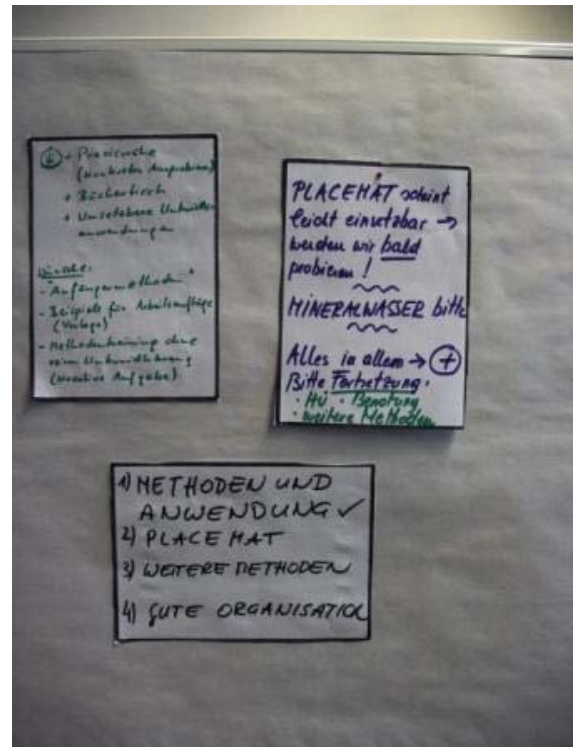 + Praxisnähe
(Konkretes Ausprobieren)
+ Büchertisch
+ Umsetzbare
anwendungen
Wünsche:
- "Anfängermethoden"
- Beispiele für Arbeitsaufträge
(Vorlage)
- Methodentraining ohne
(kreative Aufgabe)
PLACEMAT scheint
leicht einsetzbar →
werden wir bald
probieren!
MINERALWASSER bitte
Alles in allem → +
Bitte Fortsetzung.
· HÜ · Benotung
· weitere Methoden
1) METHODEN UND
ANWENDUNG ✓
2) PLACEMAT
3) WEITERE METHODEN
4) GUTE ORGANISATION